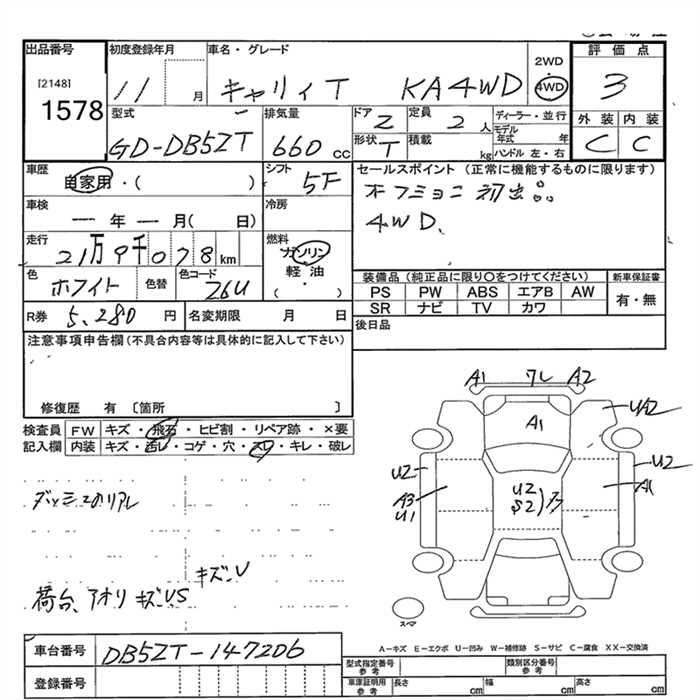 出品番号
[2148]
1578
初度登録年月
11 月
車名・グレード
キャリィ T KA4WD
2WD
4WD
評価点
3
外装 内装
C C
型式
GD-DB52T
排気量
660 cc
ドア 2
形状 T
定員
2 人
積載
kg
ディーラー・並行
モデル年式 年
ハンドル 左・右
車歴
自家用・( )
シフト
5F
セールスポイント (正常に機能するものに限ります)
4WD、
車検
ー年ー月( 日)
冷房
走行
21万9千078 km
燃料
ガソリン
軽油
( ・ )
色
ホワイト
色替
色コード
26U
装備品 (純正品に限り○をつけてください)
PS PW ABS エアB AW
SR ナビ TV カワ
新車保証書
有・無
R券 5,280 円
名変期限 月 日
後日品
注意事項申告欄(不具合内容等は具体的に記入して下さい)
修復歴 有 〔箇所 〕
検査員記入欄
FW キズ・飛石・ヒビ割・リペア跡・×要
内装 キズ・汚レ・コゲ・穴・スレ・キレ・破レ
A1 ワレ A2
A1
UA2
U2
A3
U1
U2
S2
U2
A1
キズ・U
荷台、アオリ キズ・US
スペア
A-キズ E-エクボ U-凹み W-補修跡 S-サビ C-腐食 XX-交換済
車台番号 DB52T-147206
登録番号
型式指定番号 参考
類別区分番号 参考
車庫証明用 参考
長さ cm
幅 cm
高さ cm